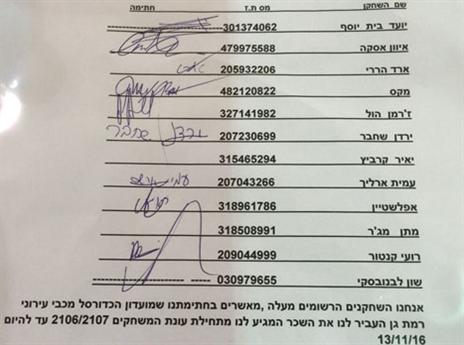 שם השחקן מס ת.ז חתימה
יועד בית יוסף 301374062
איוון אסקה 479975588
ארד הררי 205932206
מקס 482120822
ז'רמן הול 327141982
ירדן שחבר 207230699 ירדן שחבר
יאיר קרביץ 315465294
עמית ארליך 207043266
אפלשטיין 318961786
מתן מג'ר 318508991
רועי קנטור 209044999
שון לבנובסקי 030979655
אנחנו השחקנים הרשומים מעלה ,מאשרים בחתימתנו שמועדון הכדורסל מכבי עירוני
רמת גן העביר לנו את השכר המגיע לנו מתחילת עונת המשחקים 2106/2107 עד להיום
13/11/16